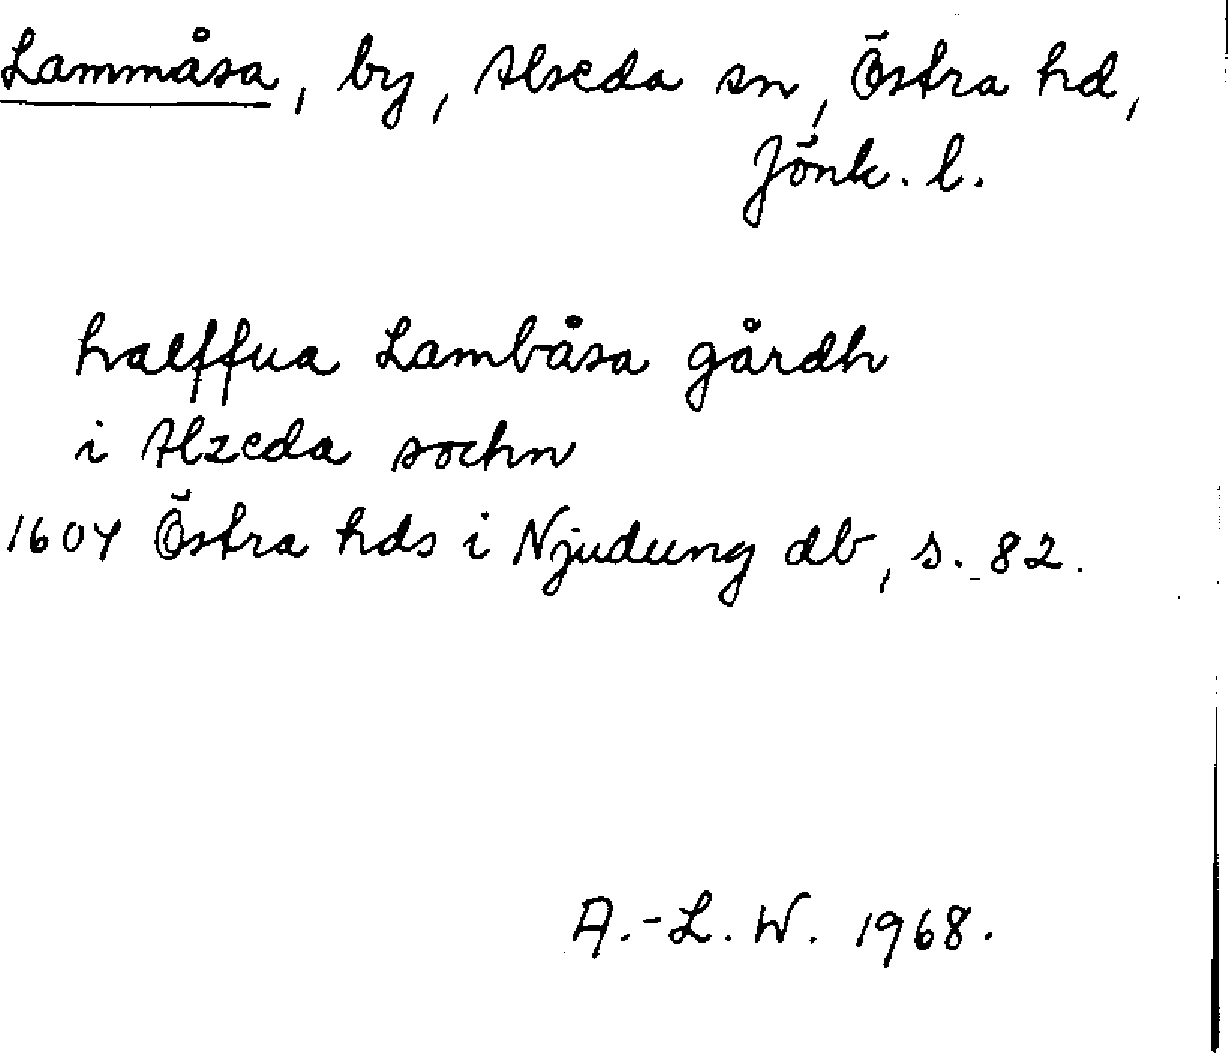 Lammåsa, by, Alseda sn, Östra hd,
Jönk. l.
halffua Lambåsa gårdh
i Alzeda sochn
1604 Östra hds i Njudung db, s. 82.
A.-L. W. 1968.